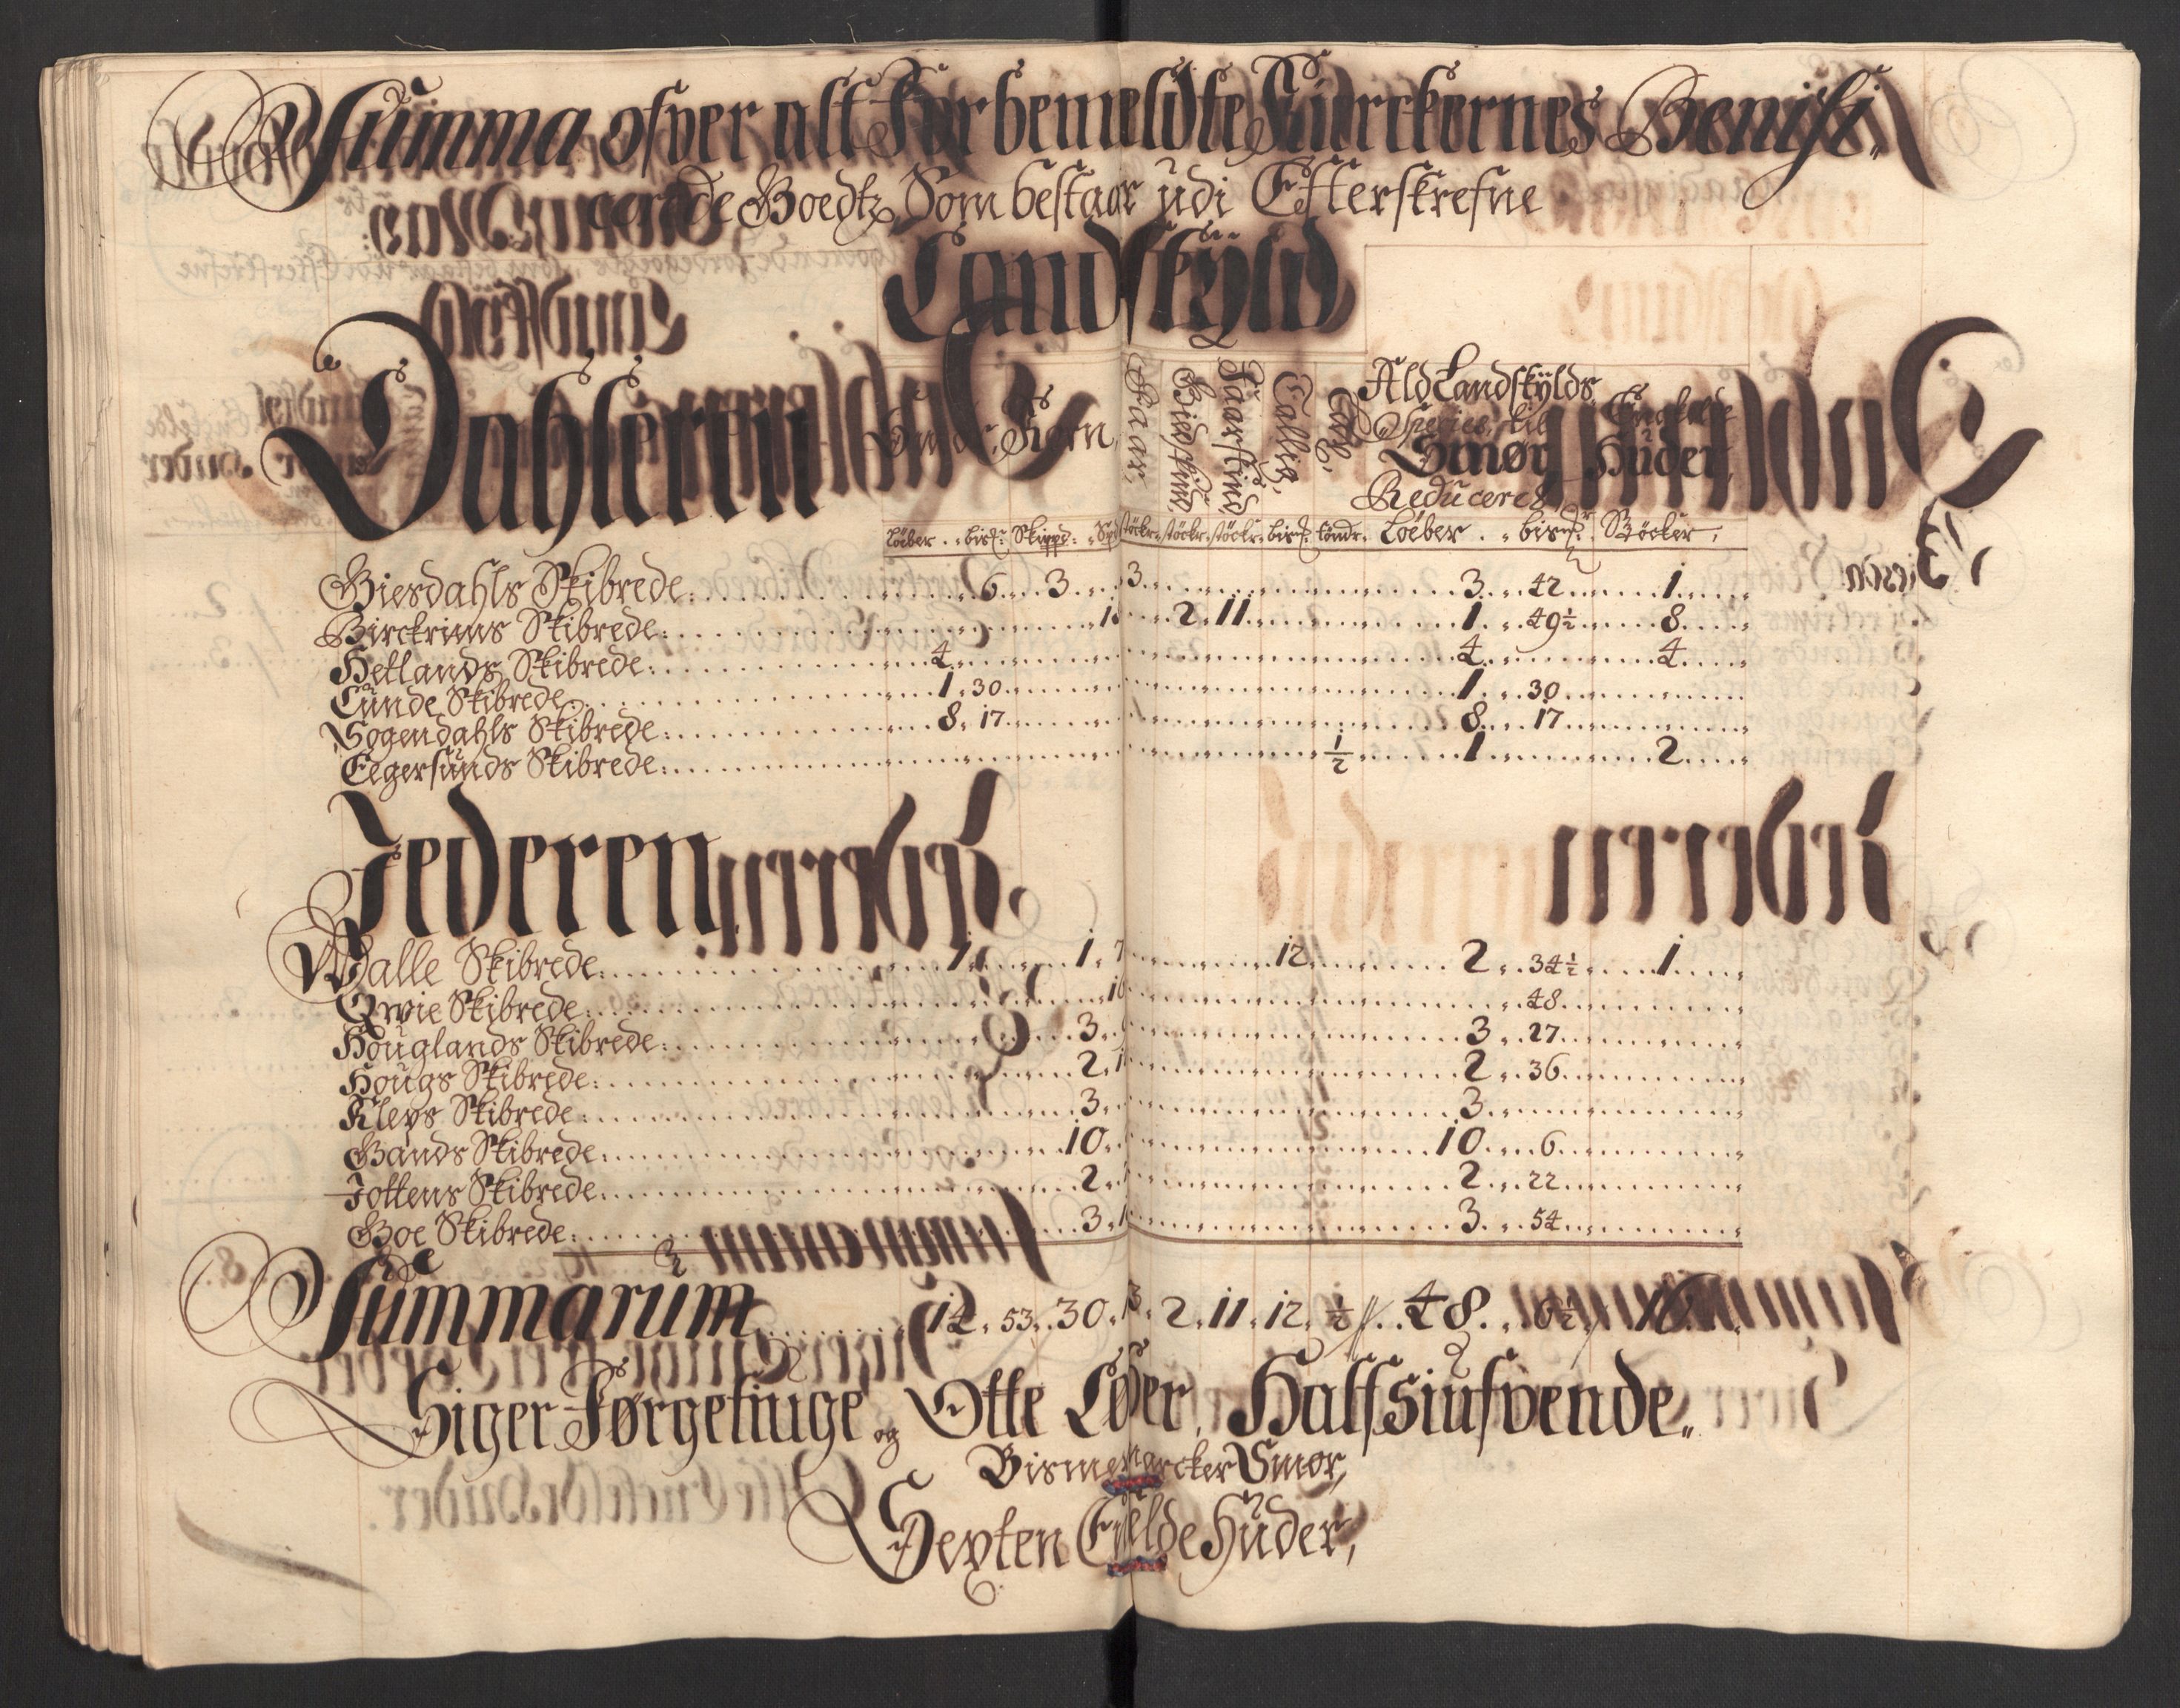 Summa ofver alt Forbemeldte Kierckernes Benifi„
cerede Boedtz, Som bestaar udi Efterskrefne
Landskÿld
Dahleren
Smør, Korn, Faar, Biedskind, Faarskind, Tallig, Ald Landskÿlds Species til Smør Reduceret Engelde Huder,
Löeber. bisf: Skippd: Spd støckr. støckr. støckr. bisf. tøndr. Löeber. bisf. Støcker,
Giesdahls Skibrede: 6. 3. 3. 3. 42. 1.
Birckrims Skibrede: 2. 11. 1. 49½ 8.
Hetlands Skibrede: 4. 4. 4.
Lunde Skibrede: 1. 30. 1. 30.
Sogendahls Skibrede: 8. 17. 8. 17.
Eegersunds Skibrede: ½ 1. 2.
Jederen
Walle Skibrede: 1. 1. 7 12. 2. 34½ 1.
Qwie Skibrede: 48.
Houglands Skibrede: 3. 3. 27.
Hougs Skibrede: 2. 2. 36.
Kleps Skibrede: 3. 3.
Gands Skibrede: 10. 10. 6.
Jottens Skibrede. 2. 2. 22.
Boe Skibrede: 3. 3. 54.
Summarum 14. 53. 30. 3. 2. 11. 12. ½ // 48. 6½ 16.
Siger Førgetiuge og Otte Löber, Halfsiufvende„
Bismemarcker Smør,
Sexten Engelde Huder,